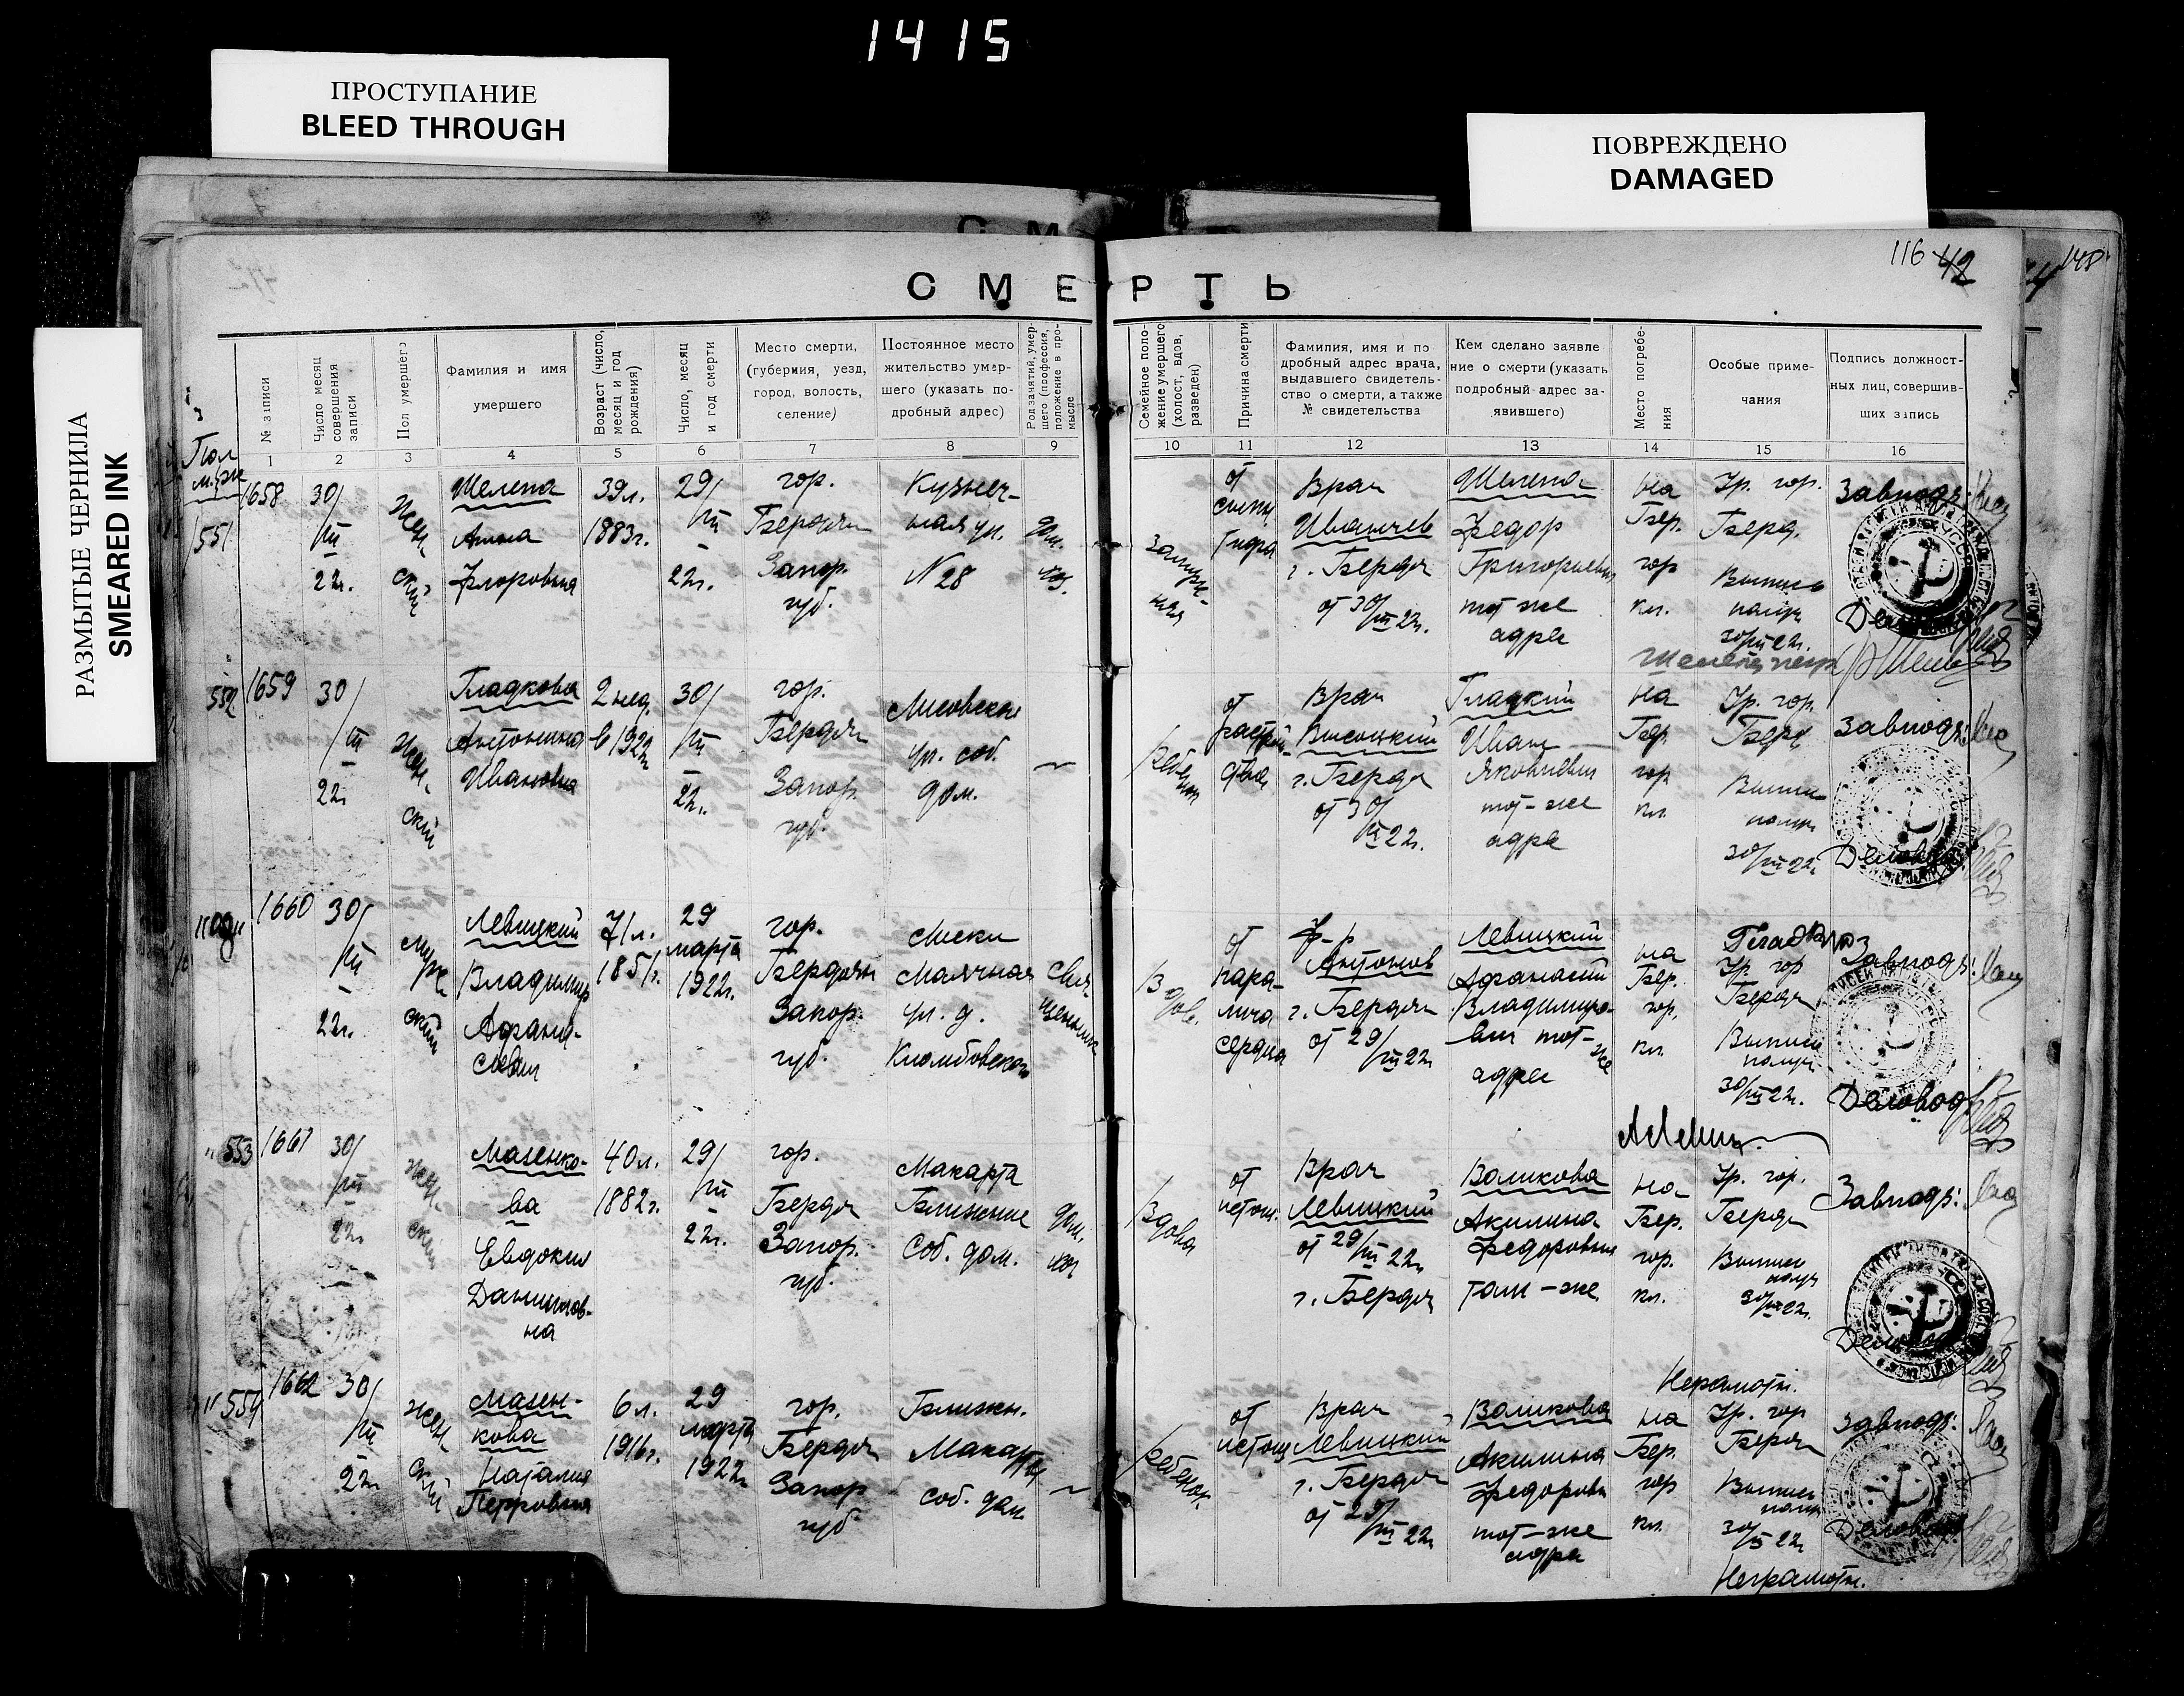 1415
ПРОСТУПАНИЕ
BLEED THROUGH
ПОВРЕЖДЕНО
DAMAGED
РАЗМЫТЫЕ ЧЕРНИЛА
SMEARED INK
116 42
148
СМЕРТЬ
№ записи
Число месяц совершения записи
Пол умершего
Фамилия и имя умершего
Возраст (число, месяц и год рождения)
Число, месяц и год смерти
Место смерти, (губерния, уезд, город, волость, селение)
Постоянное место жительство умершего (указать подробный адрес)
Род занятий, умершего (профессия, положение в промысле
Семейное положение умершего (холост, вдов, разведен)
Причина смерти
Фамилия, имя и подробный адрес врача, выдавшего свидетельство о смерти, а также № свидетельства
Кем сделано заявление о смерти (указать подробный адрес заявившего)
Место погребения
Особые примечания
Подпись должностных лиц, совершивших запись
1 2 3 4 5 6 7 8 9 10 11 12 13 14 15 16
551
1658
30/III
22г.
женский
Шелепа
Анна
Флоровна
39л.
1883г.
29/III
22г.
гор.
Бердян
Запор.
губ.
Кузнеч-
ная ул.
№ 28
дом.
хоз.
замуж-
няя
от
сыпн
тифа
Врач
Иванчев
г. Бердян
от 30/III 22г.
Шелепа
Федор
Григорьевич
тот же
адрес
на
Бер.
гор
кл.
Гр. гор.
Берд.
Выпись
получ
30/III 22г.
Завподъ:
Делов
552
1659
30/III
22г
женский
Гладкова
Антонина
Ивановна
2 нед.
в 1922г
30/III
22г.
гор.
Бердян
Запор.
губ.
Лисовская
ул. соб.
дом.
ребенок
от
Врач
Высоцкий
г. Бердян
от 30/III 22г.
Гладкий
Иван
Яковлевич
тот-же
адрес
на
Бер.
гор
кл.
Гр. гор.
Берд
Выпись
получ
30/III 22г
Завподъ:
Деловод
1660
30/III
22г.
мужский
Левицкий
Владимир
Афанась-
евич
71л.
1851г.
29
марта
1922г.
гор.
Бердянск
Запор.
губ.
Маячная
ул. д.
Кломбовского
Свя-
щенник
Вдов.
от
пара-
лича
сердца
Антонов
г. Бердян
от 29/III 22г
Левицкий
Афанасий
Владимиро-
вич тот-же
адрес
на
Бер.
гор.
кл.
Гр. гор
Бердян
Выпись
получ
30/III 22г.
Завподъ:
Деловод
553
1661
30/III
22г
женский
Мазенко-
ва
Евдокия
Данилов-
на
40л.
1882г.
29/III
22г.
гор.
Бердян
Запор.
губ.
Макорта
Ближние
Соб. дом.
дом.
хоз
Вдова
от
истощ.
Врач
Левицкий
от 29/III 22г
г. Бердян
Воликова
Акилина
Федоровна
там-же
на
Бер.
гор.
кл.
Гр. гор.
Бердян
Выпись
получ
30/III 22г.
Завподъ:
Делов
Неграмотн.
554
1662
30/III
22г
женский
Мазен-
кова
Наталия
Петровна
6л.
1916г.
29
марта
1922г
гор.
Бердян
Запор
губ
Ближн.
Макорты
соб. дом.
ребенок.
от
истощ
Врач
Левицкий
г. Бердян
от 29/III 22г
Воликова
Акилина
Федоровн
тот-же
адрес
на
Бер.
гор
кл.
Гр. гор
Бердян
Выпись
получ
30/III 22г
Завподъ:
Деловод
Неграмотн.